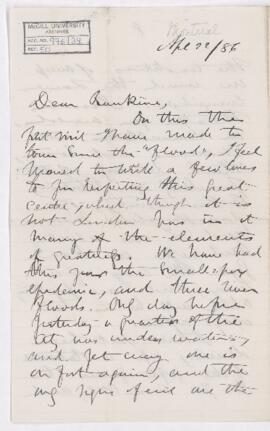 McGILL UNIVERSITY
ARCHIVES
ACC. NO. 976/34
REF. 50
Montreal
Apl 22/86
Dear Rankine,
On this the
first visit I have made to
town since the "floods", I feel
moved to write a few lines
to you respecting this great
centre, which though it is
not London has in it
many of the elements
of greatness. We have had
this year the small-pox
epidemic, and three
floods. Only day before
yesterday a quarter of the
city was under water,
and yet every one is
on foot again, and the
only signs of evil are the